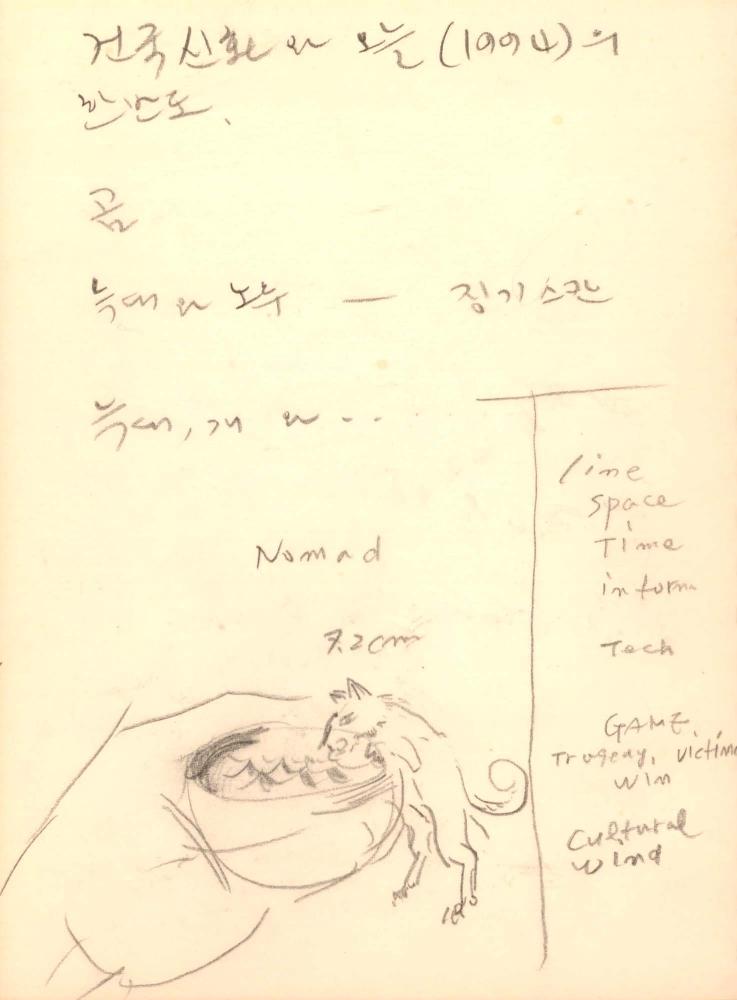 건국신화와 오늘(1994)의
한반도.
곰
늑대와 노루 — 징기스칸
늑대, 개 와 ..
Nomad
7.2cm
line
space
Time
inform
Tech
GAME,
Tragedy, victim
win
Cultural
wind